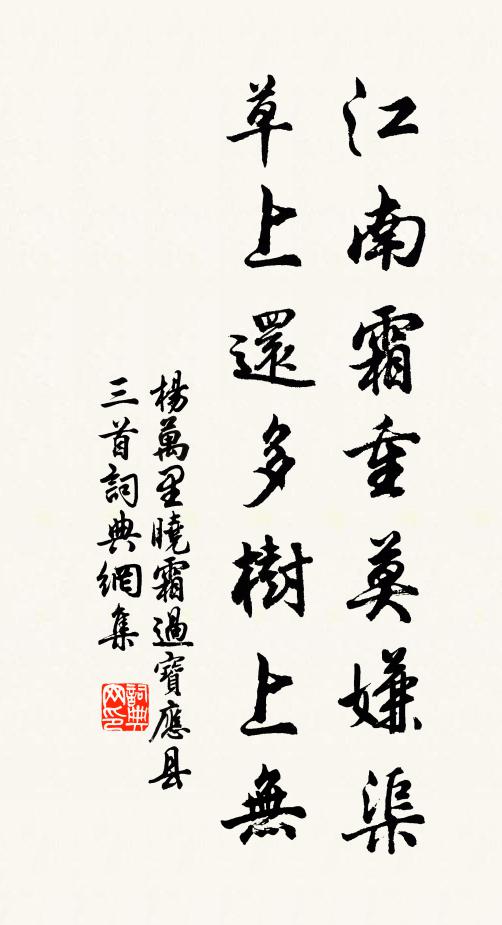 江南霜重莫嫌渠
草上還多樹上無
楊萬里曉霜過寶應县
三首詞典網集
詞典网印